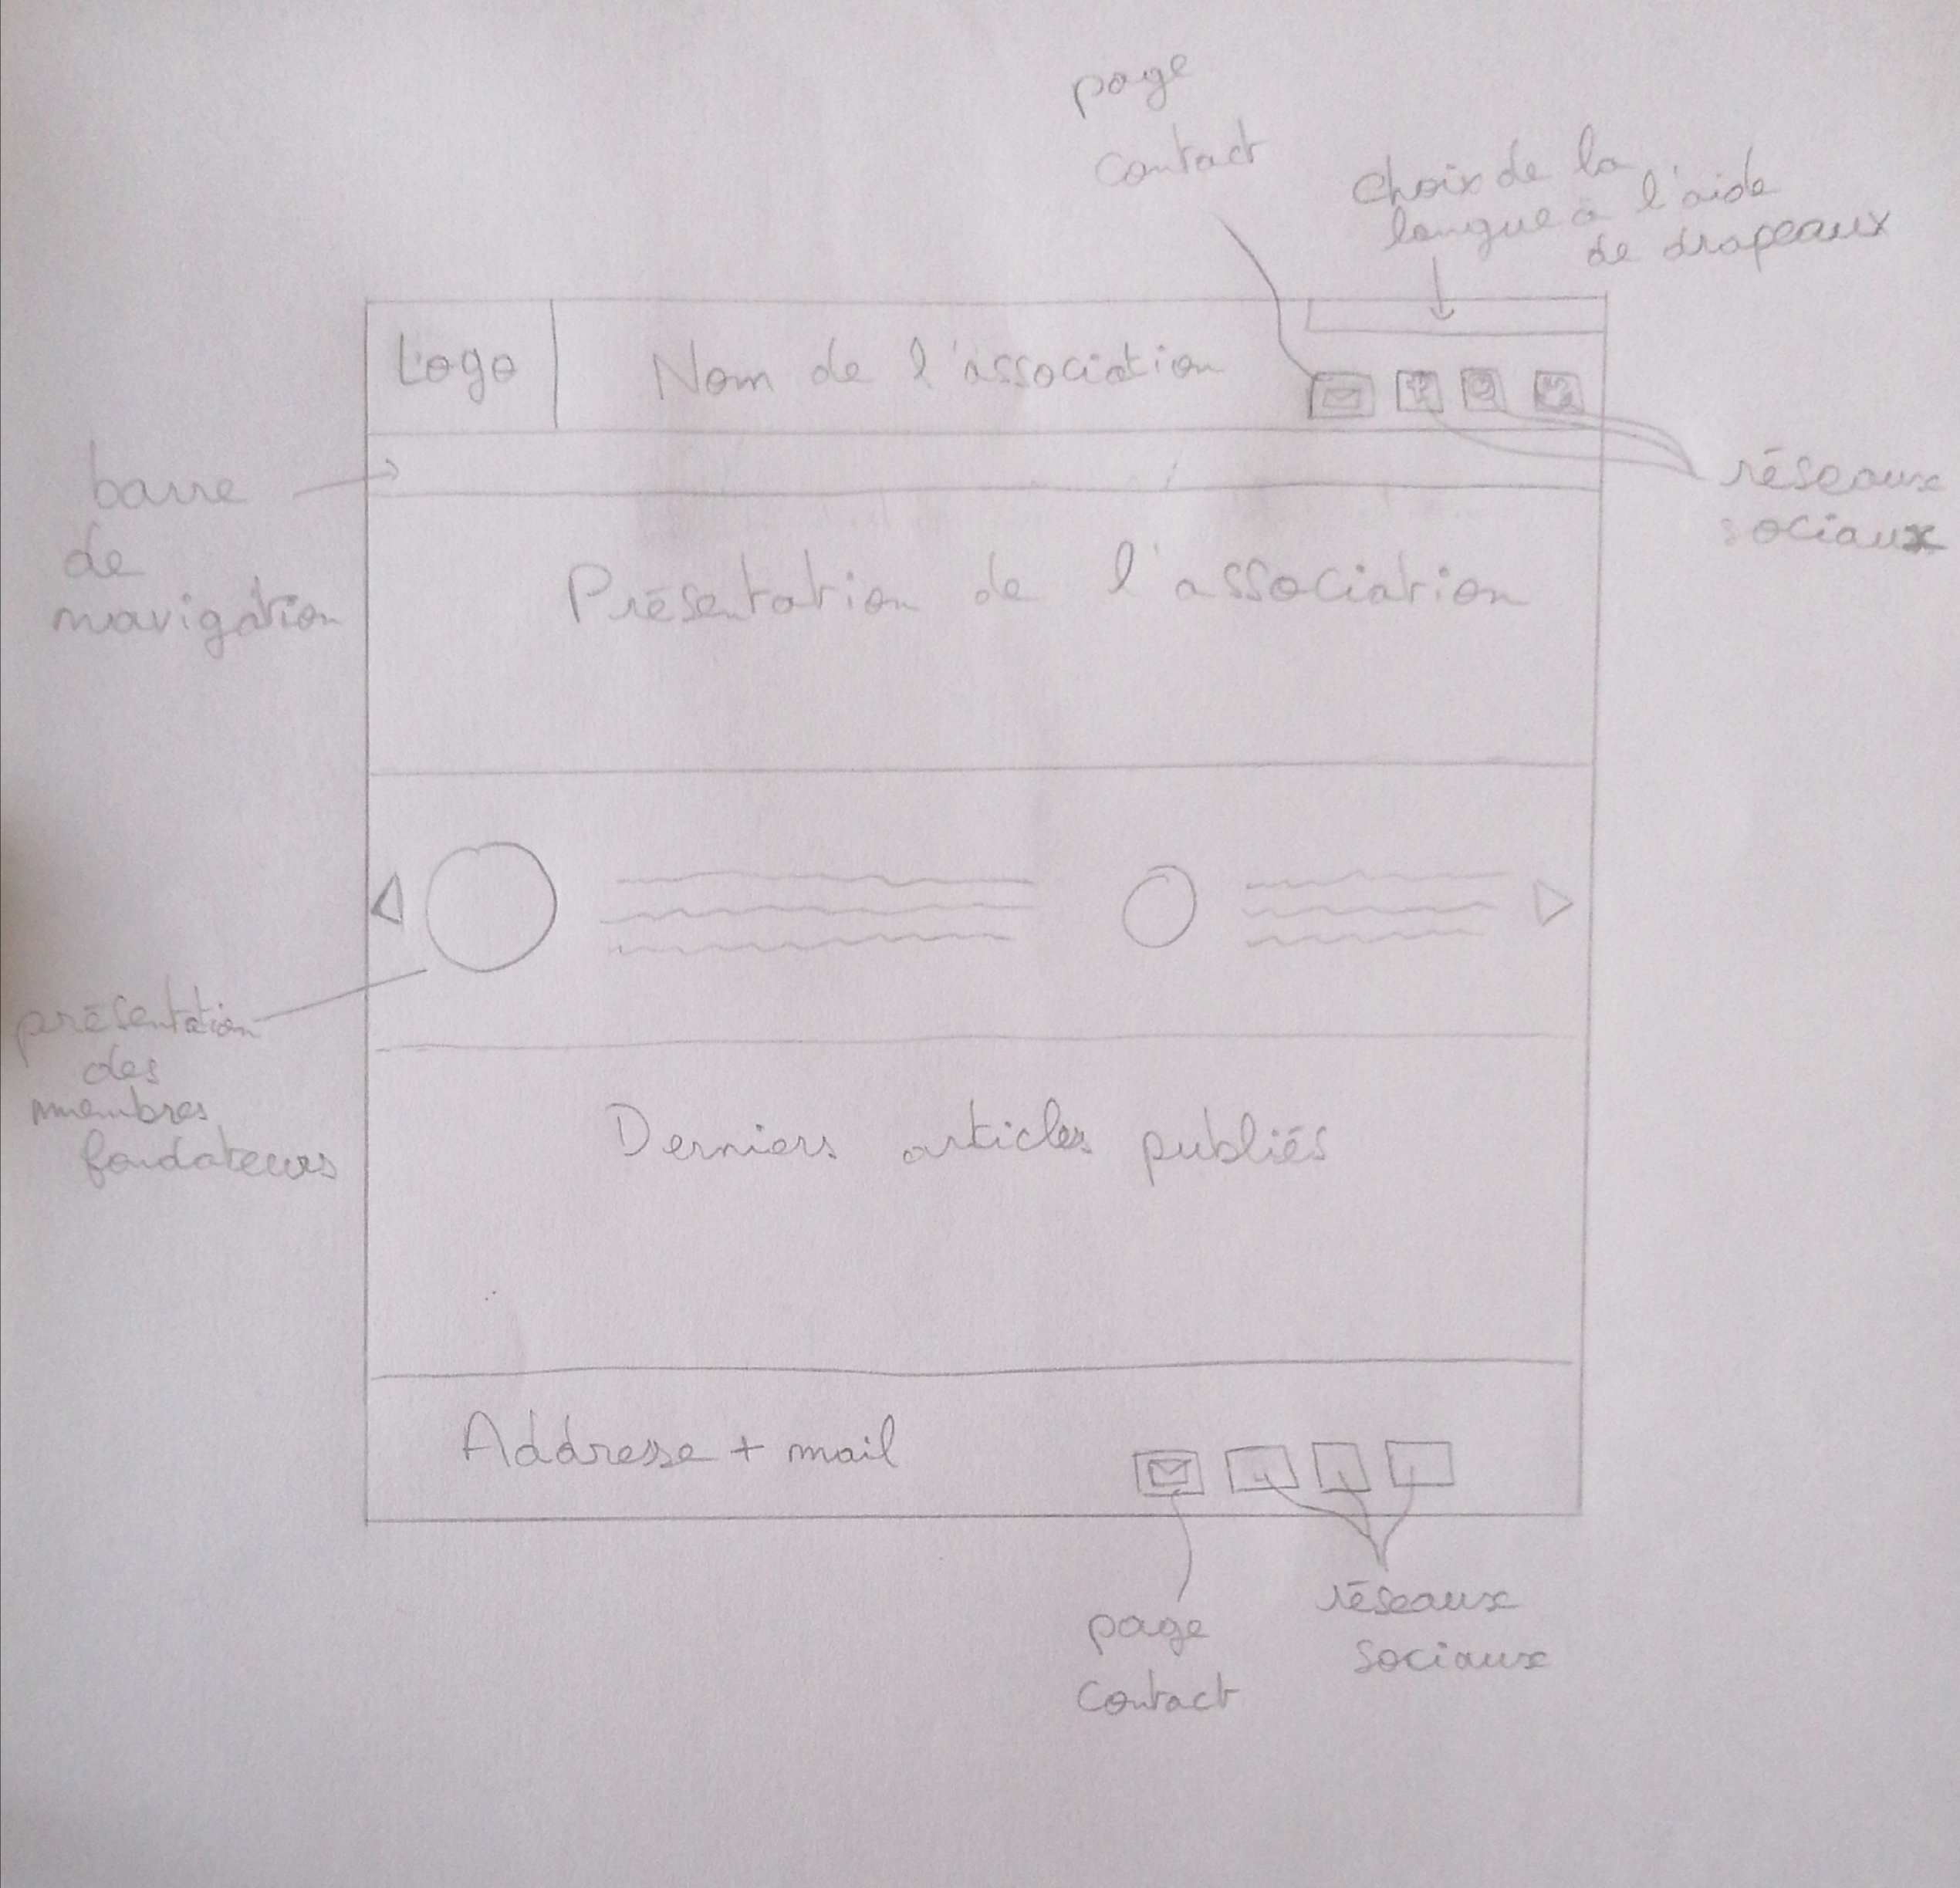 page
contact
choix de la
langue à l'aide
de drapeaux
Logo
Nom de l'association
barre
de
navigation
réseaux
sociaux
Présentation de l'association
présentation
des
membres
fondateurs
Derniers articles publiés
Addresse + mail
page
contact
réseaux
sociaux